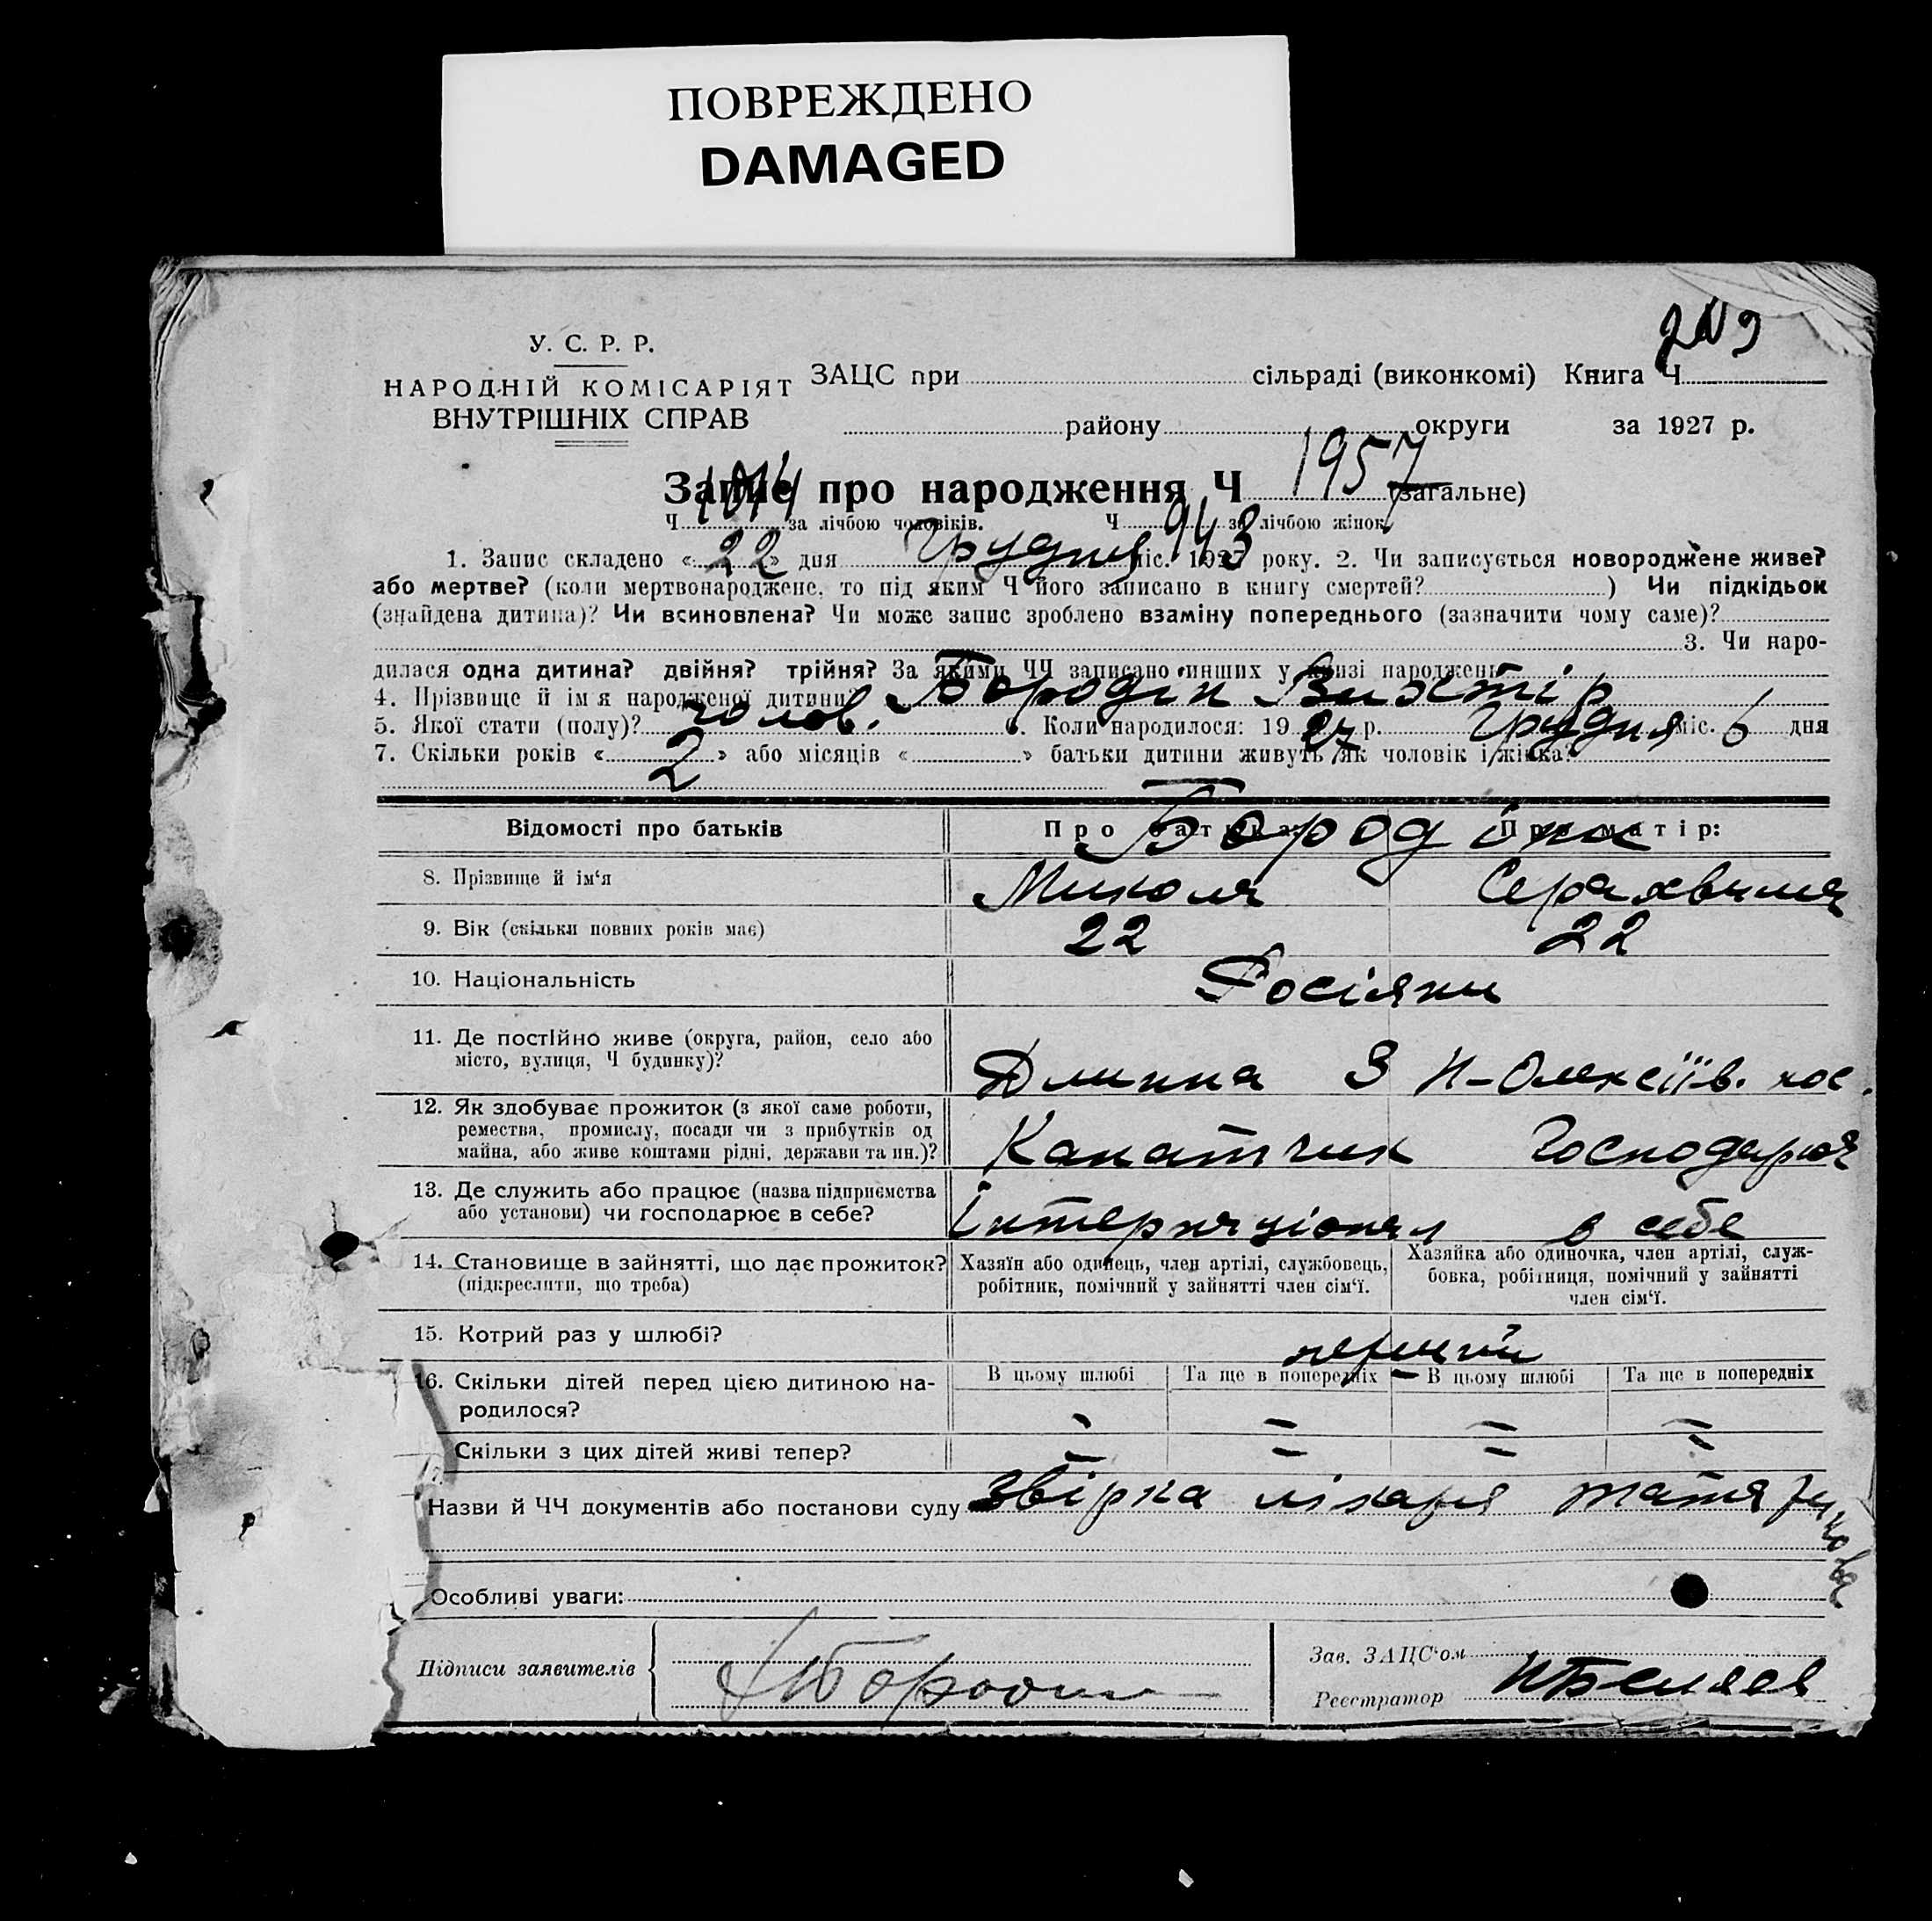 ПОВРЕЖДЕНО
DAMAGED
У. С. Р. Р.
НАРОДНІЙ КОМІСАРІЯТ
ВНУТРІШНІХ СПРАВ
ЗАЦС при сільраді (виконкомі) Книга Ч
району округи за 1927 р.
Запис про народження Ч 1957 (загальне)
Ч за лічбою чоловіків. Ч 943 за лічбою жінок
1. Запис складено «22» дня Грудня міс. 1927 року. 2. Чи записується новороджене живе?
або мертве? (коли мертвонароджене, то під яким Ч його записано в книгу смертей? ) Чи підкідьок
(знайдена дитина)? Чи всиновлена? Чи може запис зроблено взаміну попереднього (зазначити чому саме)?
3. Чи наро-
дилася одна дитина? двійня? трійня? За якими ЧЧ записано инших у книзі народжень
4. Прізвище й ім'я народженої дитини? Бородін Віктір
5. Якої стати (полу)? чолов. 6. Коли народилося: 1927 р. Грудня міс. 6 дня
7. Скільки років «2» або місяців « » батьки дитини живуть як чоловік і жінка?
Відомості про батьків Про батька: Про матір:
Бородіни
8. Прізвище й ім‘я Микола Серахвима
9. Вік (скільки повних років має) 22 22
10. Національність Росіяни
11. Де постійно живе (округа, район, село або
місто, вулиця, Ч будинку)? Длинна 3 Н-Олексіїв. пос.
12. Як здобуває прожиток (з якої саме роботи,
ремества, промислу, посади чи з прибутків од
майна, або живе коштами рідні, держави та ин.)? Канатчик Господарює
13. Де служить або працює (назва підприємства
або установи) чи господарює в себе? Інтернаціонал в себе
14. Становище в зайнятті, що дає прожиток?
(підкреслити, що треба)
Хазяїн або одинець, член артілі, службовець,
робітник, помічний у зайнятті член сім‘ї.
Хазяйка або одиночка, член артілі, служ-
бовка, робітниця, помічний у зайнятті
член сім‘ї.
15. Котрий раз у шлюбі? перший
16. Скільки дітей перед цією дитиною на-
родилося?
В цьому шлюбі Та ще в попередніх В цьому шлюбі Та ще в попередніх
Скільки з цих дітей живі тепер?
Назви й ЧЧ документів або постанови суду звірка лікаря
Особливі уваги:
Підписи заявителів Бородин
Зав. ЗАЦС‘ом
Реєстратор Беляев